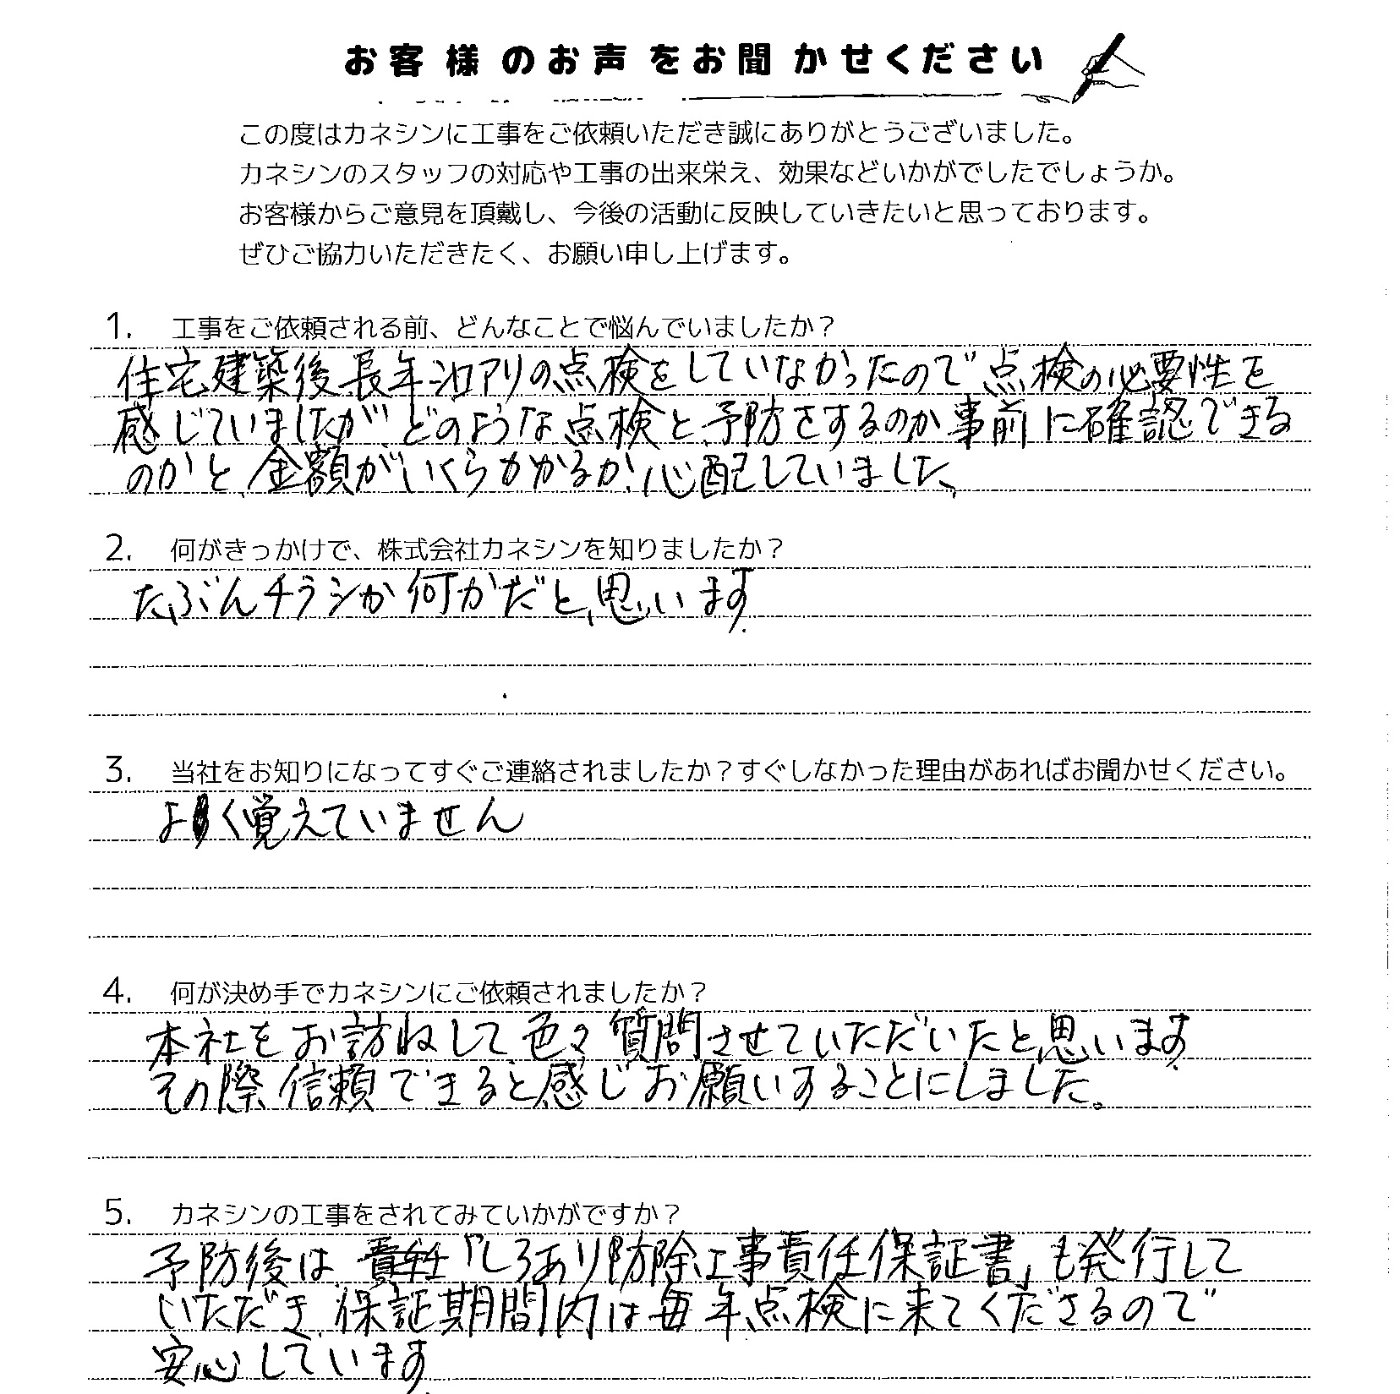 お客様のお声をお聞かせください
この度はカネシンに工事をご依頼いただき誠にありがとうございました。
カネシンのスタッフの対応や工事の出来栄え、効果などいかがでしたでしょうか。
お客様からご意見を頂戴し、今後の活動に反映していきたいと思っております。
ぜひご協力いただきたく、お願い申し上げます。
1. 工事をご依頼される前、どんなことで悩んでいましたか？
住宅建築後長年シロアリの点検をしていなかったので点検の必要性を
感じていましたが、どのような点検と予防をするのか事前に確認できる
のかと、金額がいくらかかるか心配していました。
2. 何がきっかけで、株式会社カネシンを知りましたか？
たぶんチラシか何かだと思います。
3. 当社をお知りになってすぐご連絡されましたか？すぐしなかった理由があればお聞かせください。
よく覚えていません
4. 何が決め手でカネシンにご依頼されましたか？
本社をお訪ねして色々質問させていただいたと思います。
その際信頼できると感じお願いすることにしました。
5. カネシンの工事をされてみていかがですか？
予防後は「しろあり防除工事責任保証書」も発行して
いただき保証期間内は毎年点検に来てくださるので
安心しています。